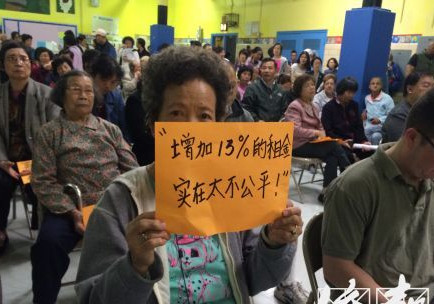 "增加13%的租金
实在太不公平!"